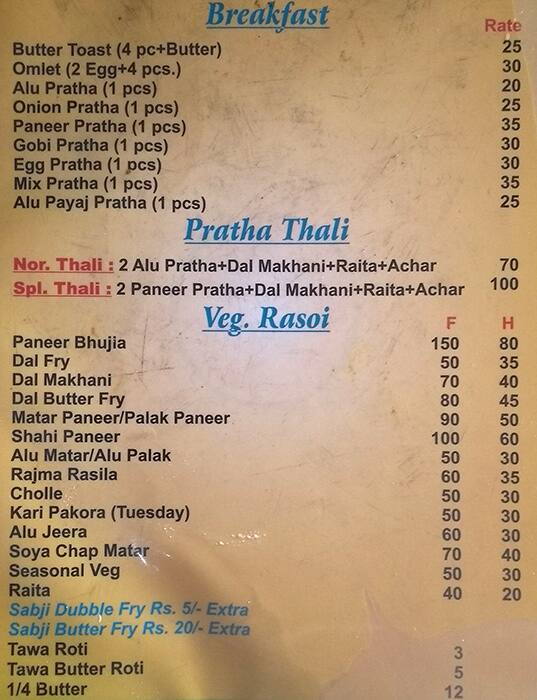 Breakfast
Rate
Butter Toast (4 pc+Butter) 25
Omlet (2 Egg+4 pcs.) 30
Alu Pratha (1 pcs) 20
Onion Pratha (1 pcs) 25
Paneer Pratha (1 pcs) 35
Gobi Pratha (1 pcs) 30
Egg Pratha (1 pcs) 30
Mix Pratha (1 pcs) 35
Alu Payaj Pratha (1 pcs) 25
Pratha Thali
Nor. Thali : 2 Alu Pratha+Dal Makhani+Raita+Achar 70
Spl. Thali : 2 Paneer Pratha+Dal Makhani+Raita+Achar 100
Veg. Rasoi F H
Paneer Bhujia 150 80
Dal Fry 50 35
Dal Makhani 70 40
Dal Butter Fry 80 45
Matar Paneer/Palak Paneer 90 50
Shahi Paneer 100 60
Alu Matar/Alu Palak 50 30
Rajma Rasila 60 35
Cholle 50 30
Kari Pakora (Tuesday) 50 30
Alu Jeera 60 30
Soya Chap Matar 70 40
Seasonal Veg 50 30
Raita 40 20
Sabji Dubble Fry Rs. 5/- Extra
Sabji Butter Fry Rs. 20/- Extra
Tawa Roti 3
Tawa Butter Roti 5
1/4 Butter 12